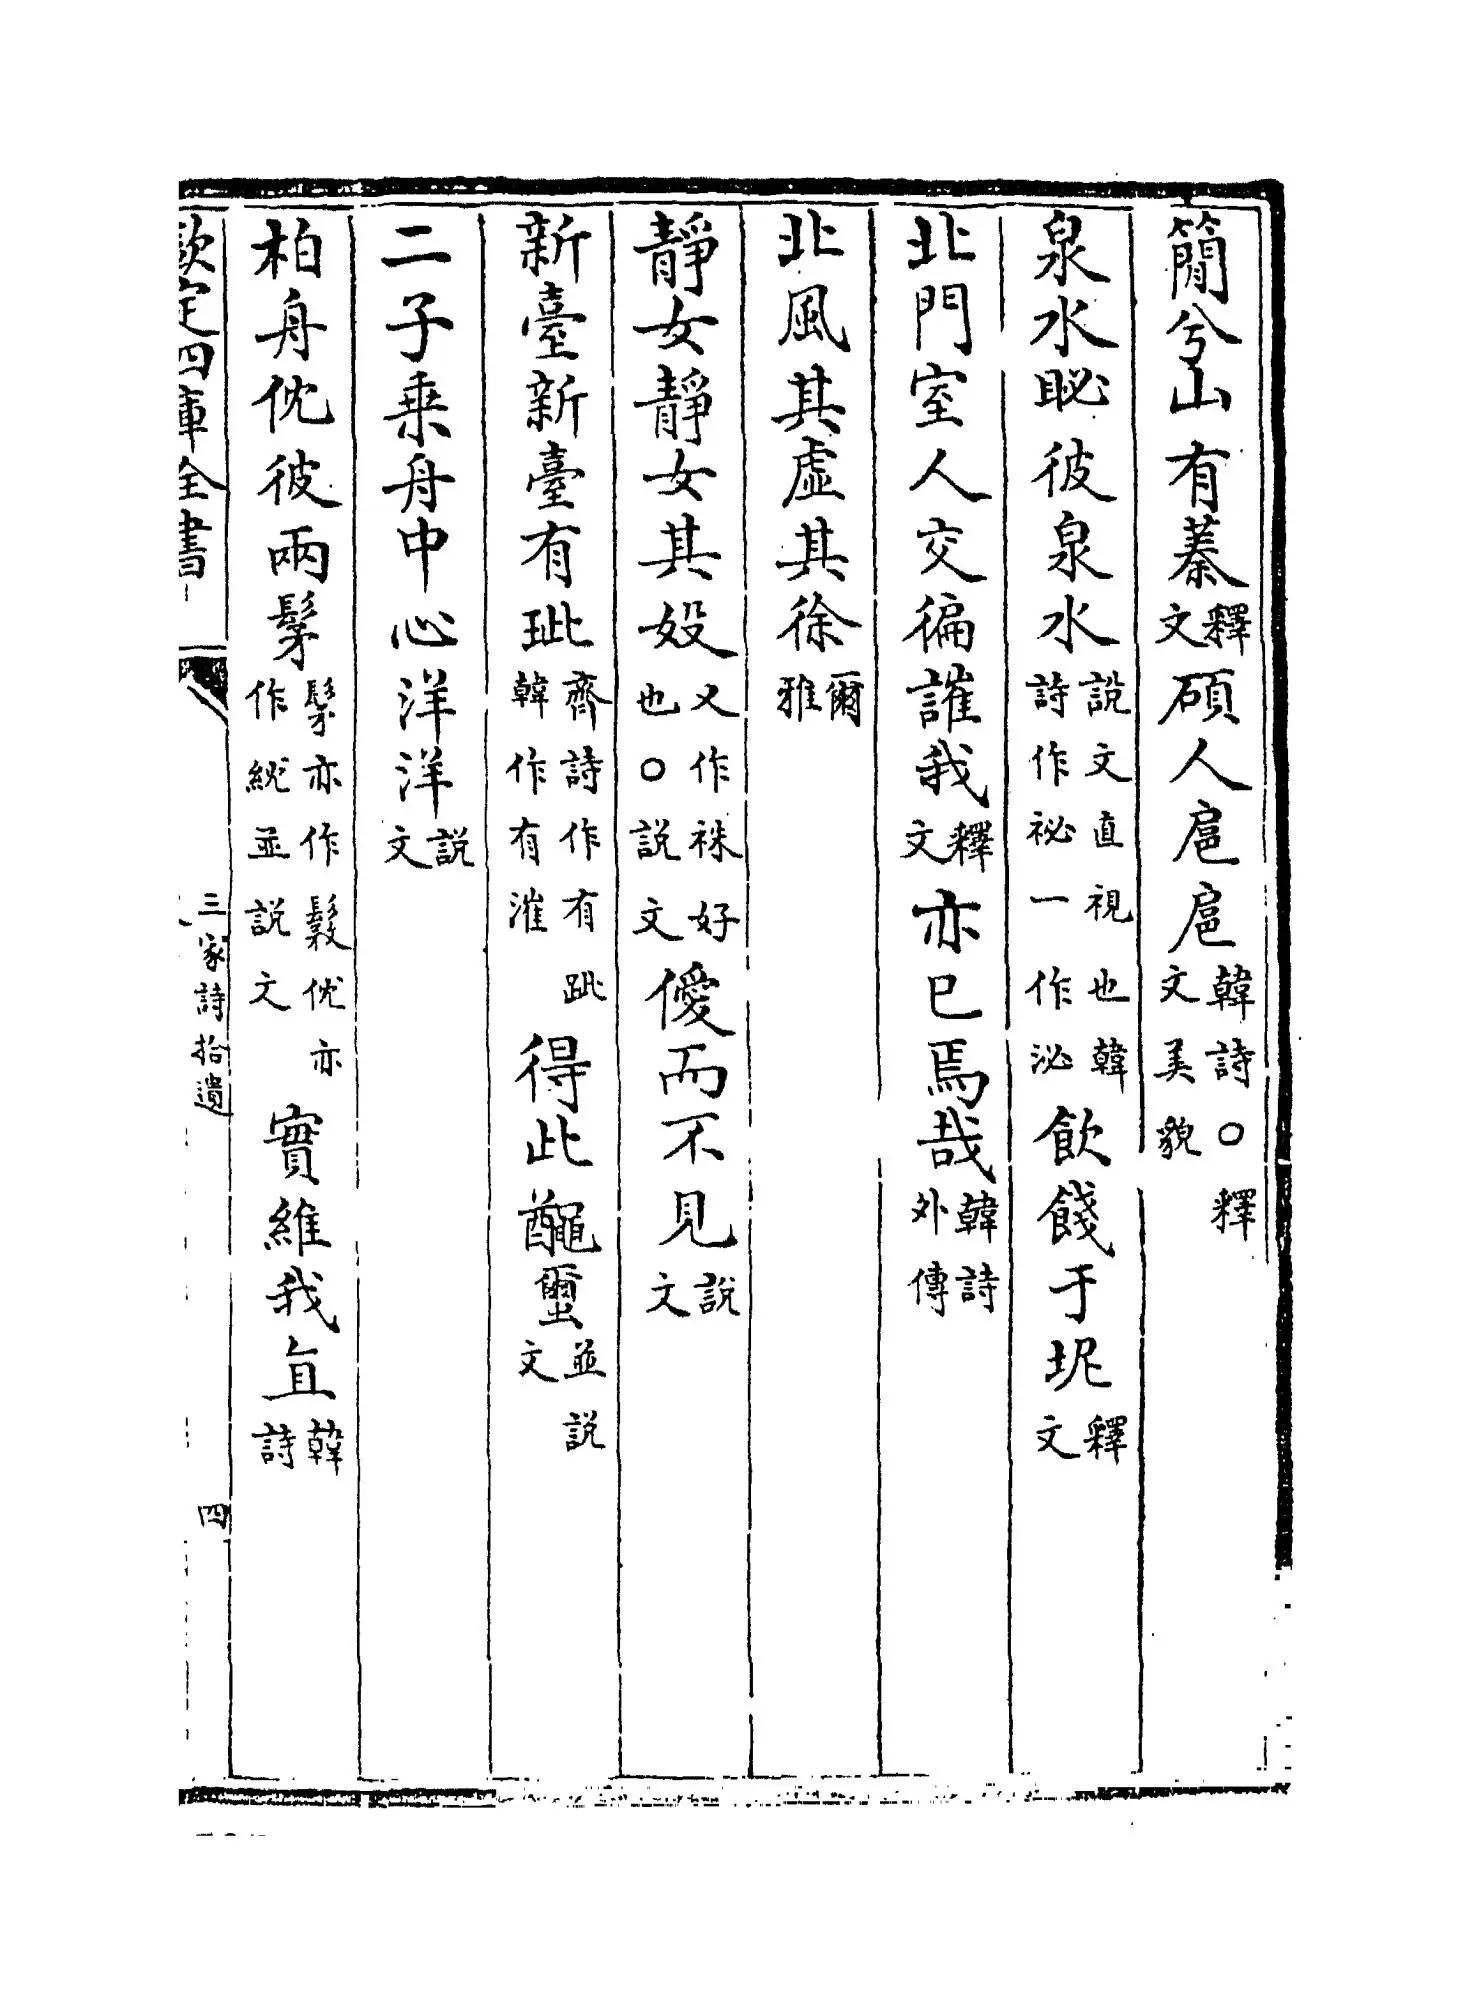 簡兮山有蓁釋文碩人扈扈韓詩○釋文美貌
泉水眍彼泉水說文直視也韓詩作祕一作泌飲餞于坭釋文
北門室人交徧讙我釋文亦已焉哉韓詩外傳
北風其虛其徐爾雅
靜女靜女其㚫又作袾好也○說文僾而不見說文
新臺新臺有玼齊詩作有跐韓作有漼得此𪓰䵹並說文
二子乗舟中心洋洋說文
柏舟優彼兩髳髳亦作鬏亦作紞並說文實維我直韓詩
欽定四庫全書
三家詩拾遺
四